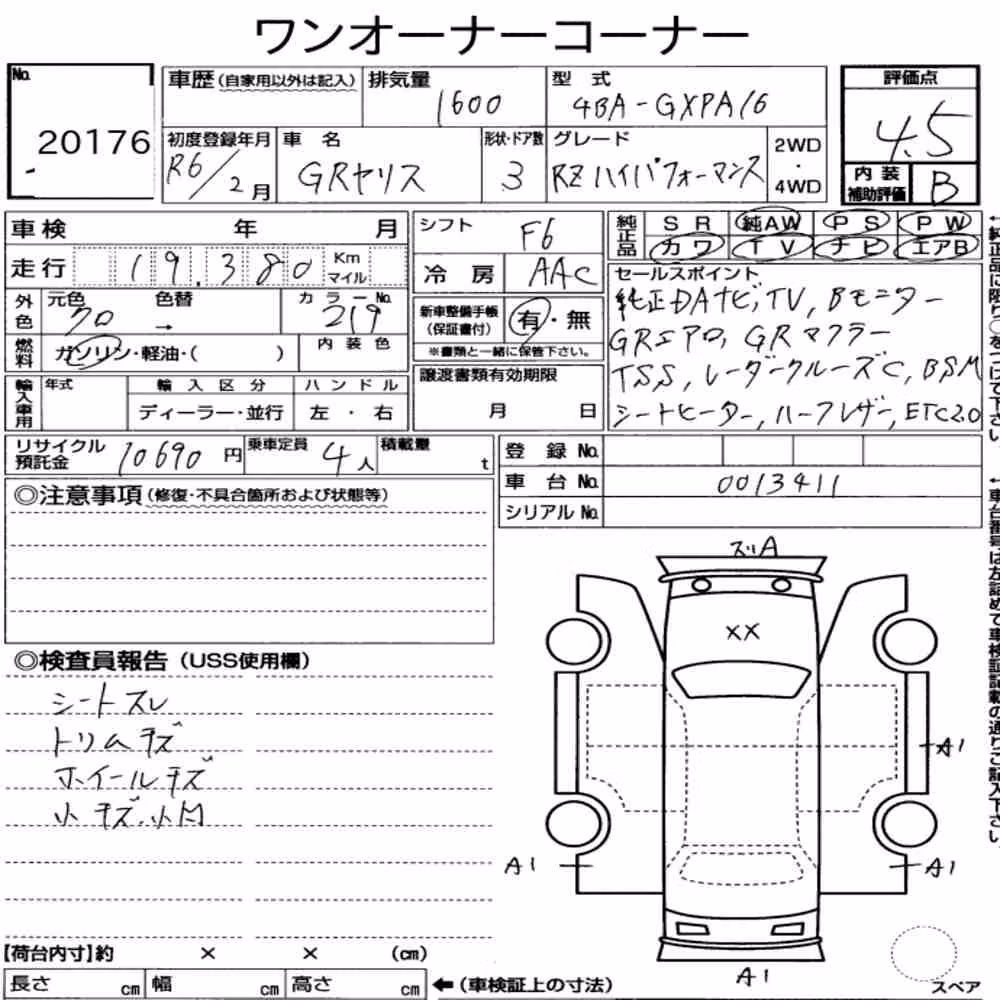 ワンオーナーコーナー
No. 20176
車歴（自家用以外は記入）
排気量 1600
型式 4BA-GXPA16
評価点 4.5
初度登録年月 R6/2月
車名 GRヤリス
形状・ドア数 3
グレード RZ ハイパフォーマンス
2WD・4WD
内装補助評価 B
車検 年 月
走行 19,380 Km マイル
シフト F6
冷房 AAC
純正品 SR 純AW PS PW
カワ TV ナビ エアB
外色 元色 クロ → 色替
カラーNo. 219
燃料 ガソリン・軽油・（ ）
内装色
新車整備手帳（保証書付） 有・無
※書類と一緒に保管下さい。
セールスポイント
純正DAナビ,TV,Bモニター
GRエアロ,GRマフラー
TSS,レーダークルーズC,BSM
シートヒーター,ハーフレザー,ETC2.0
輸入車用 年式
輸入区分 ディーラー・並行
ハンドル 左・右
譲渡書類有効期限 月 日
リサイクル預託金 10690円
乗車定員 4人
積載量 t
登録No.
車台No. 0013411
シリアルNo.
◎注意事項（修復・不具合箇所および状態等）
◎検査員報告（USS使用欄）
シートスレ
トリムキズ
ホイールキズ
小キズ.小凹
ズリA
XX
A1
A1
A1
A1
スペア
【荷台内寸】約 × × （cm）
長さ cm 幅 cm 高さ cm
←（車検証上の寸法）
←純正品に限り○をつけて下さい。
←車台番号は左詰めで車検証記載の通りご記入下さい。